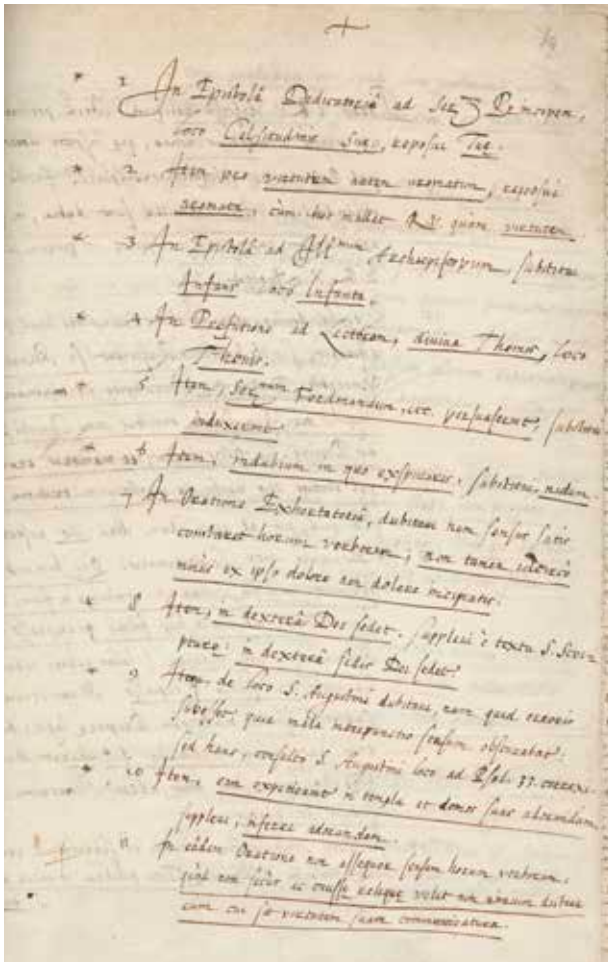 19
* 1 In Epistolâ Dedicatoriâ ad Ser Principem,
loco Celsitudinis Suæ, reposui Tuæ.
* 2. Item pro virtutem autem ornatum, reposui
ornate, cùm hoc mallet R.V. quàm virtutem
* 3 In Epistolâ ad Illmum Archiepiscopum, substitui
Infans loco Infante.
* 4 In Præfatione ad Lectorem, divina Themis, loco
Thonis.
* 5 Item, Sermum Ferdinandum, etc. persuaserunt, substitui
induxerunt
* 6 Item, indubium in quo exspiravit, substitui, nudum.
7 In Oratione Exhortatoriâ, dubitavi num sensus satis
constaret horum verborum; non tamen idcirco
minùs ex ipso dolore non dolere incipiatis.
* 8 Item, in dexterâ Dei sedet. supplevi è textu S. Scrip
turæ: in dexterâ sedis Dei sedet.
* 9 Item de loco S. Augustini dubitavi, num quid erroris
subesset, quia mala interpunctio sensum obscurabat:
sed hanc, consulto S. Augustini loco ad Psal. 33. correxi.
* 10 Item, in templa et domos suas
supplevi,
11 In eâdem Oratione non assequor sensum horum verborum,
velit non
cum virtutem suam